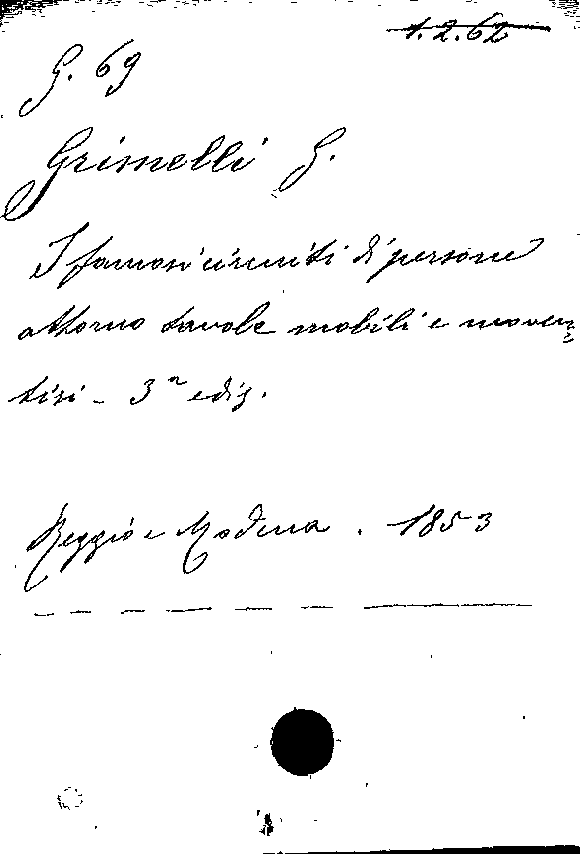 1.2.62
G. 69
Grimelli G.
I famosi circuiti di persone
attorno tavole mobili e moven=
tisi - 3ª ediz.
Reggio e Modena. 1853